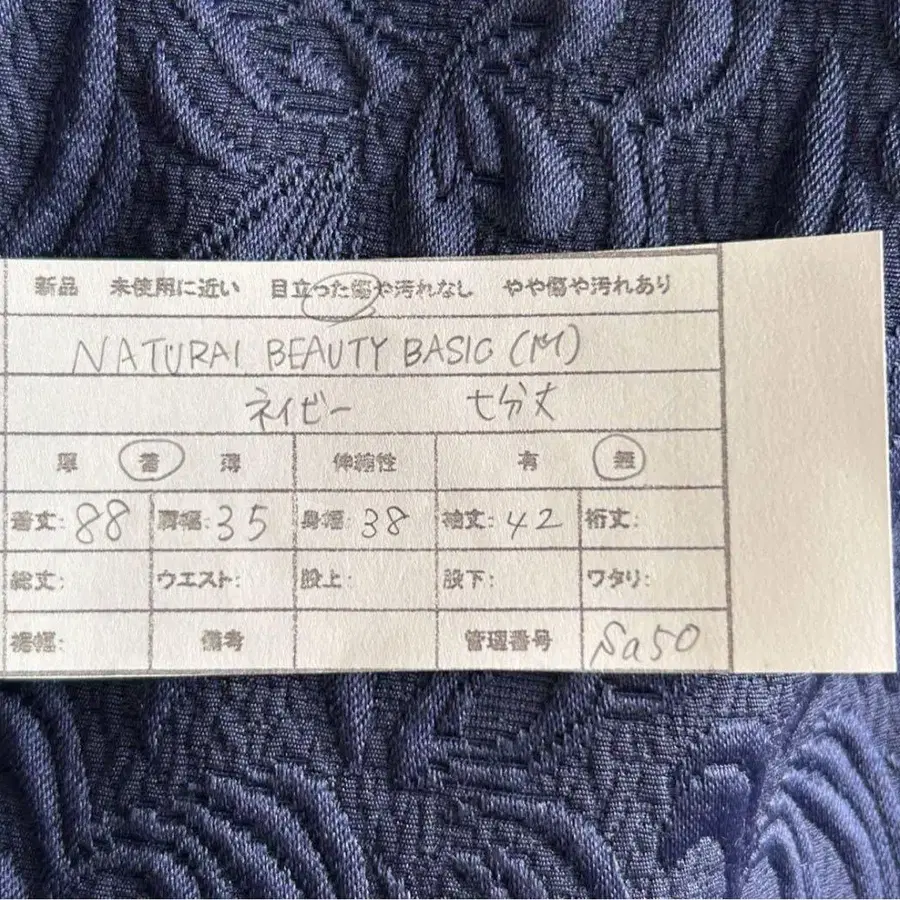 新品 未使用に近い 目立った傷や汚れなし やや傷や汚れあり
NATURAL BEAUTY BASIC (M)
ネイビー 七分丈
厚 普 薄 伸縮性 有 無
着丈: 88 肩幅: 35 身幅: 38 袖丈: 42 裄丈:
総丈: ウエスト: 股上: 股下: ワタリ:
裾幅: 備考 管理番号 Sa50